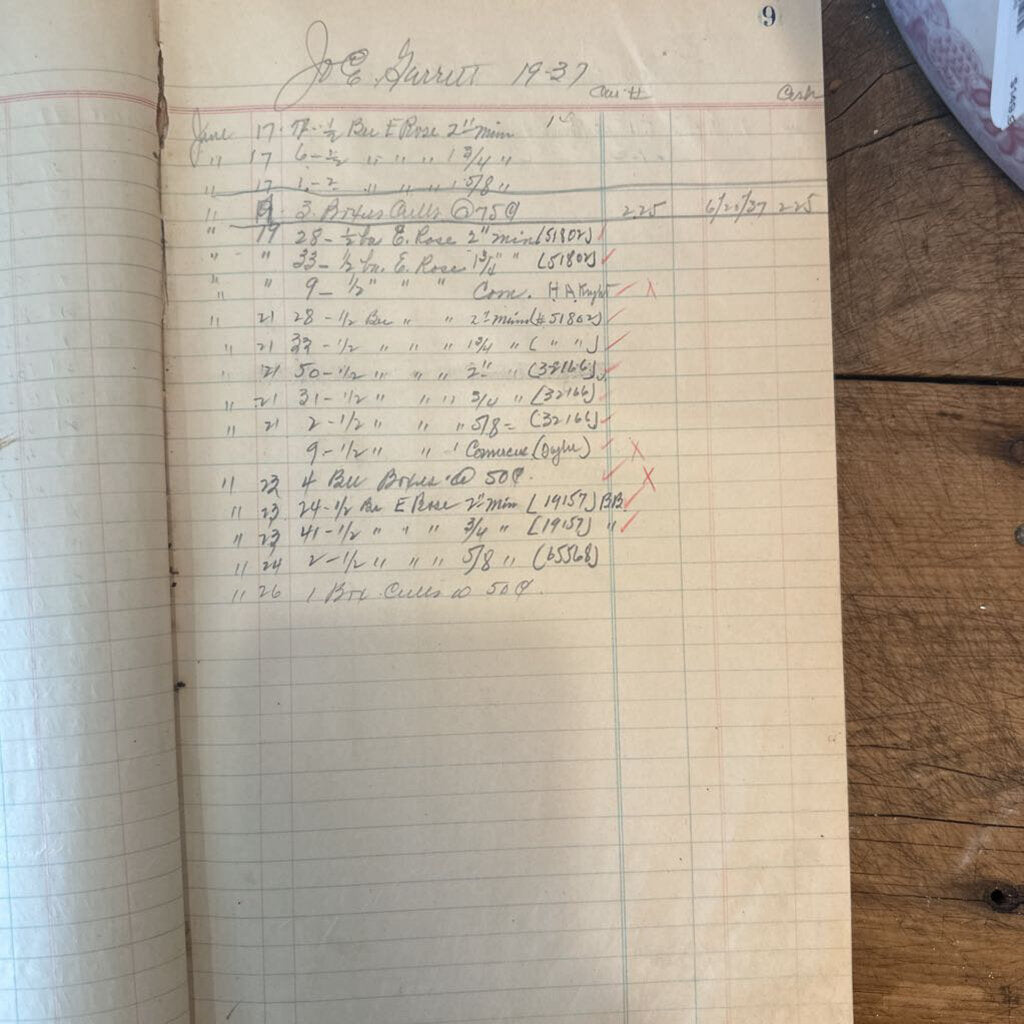 9
Jo E. Garrett 19-37
Car # Cash
June 17 - 1/2 Bu E Rose 2" min
" 17 6 - 1/2 " " " 1 3/4 "
" 17 1 - 2 " " " 1 5/8 "
" 3 Boxes Culls @ 75¢ 2 25 6/20/37 2 25
" 19 28 - 1/2 bu E. Rose 2" min (51802)
" " 33 - 1/2 bu. E. Rose 1 3/4 " " (51802)
" " 9 - 1/2 " " " Com. H A Knight X
" 21 28 - 1/2 Bu " " 2" min (# 51802)
" 21 33 - 1/2 " " " 1 3/4 " ( " " )
" 21 50 - 1/2 " " " 2" " (32166)
" 21 31 - 1/2 " " " 3/4 " (32166)
" 21 2 - 1/2 " " " 5/8 = (32166)
9 - 1/2 " " " X
" 23 4 Bu Boxes @ 50¢. X
" 23 24 - 1/2 Bu E Rose 2" min (19157) BB
" 23 41 - 1/2 " " " 3/4 " (19157) "
" 24 2 - 1/2 " " " 5/8 " (65568)
" 26 1 Box Culls @ 50¢.